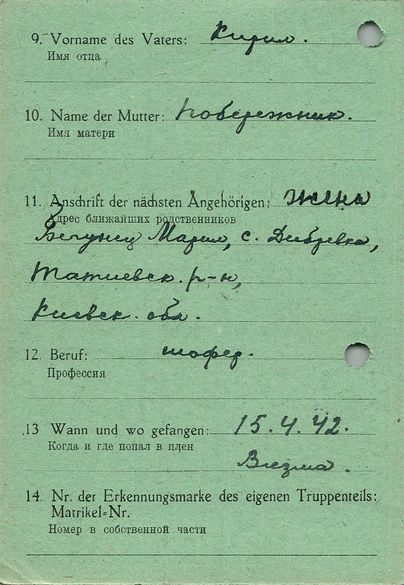 9. Vorname des Vaters: Кирил.
Имя отца
10. Name der Mutter: Побережник.
Имя матери
11. Anschrift der nächsten Angehörigen: Жена
Адрес ближайших родственников
Мария, с. Дибревка,
р-н,
Киевск. обл.
12. Beruf: шофер.
Профессия
13 Wann und wo gefangen: 15.4.42.
Когда и где попал в плен
Вязма.
14. Nr. der Erkennungsmarke des eigenen Truppenteils:
Matrikel-Nr.
Номер в собственной части